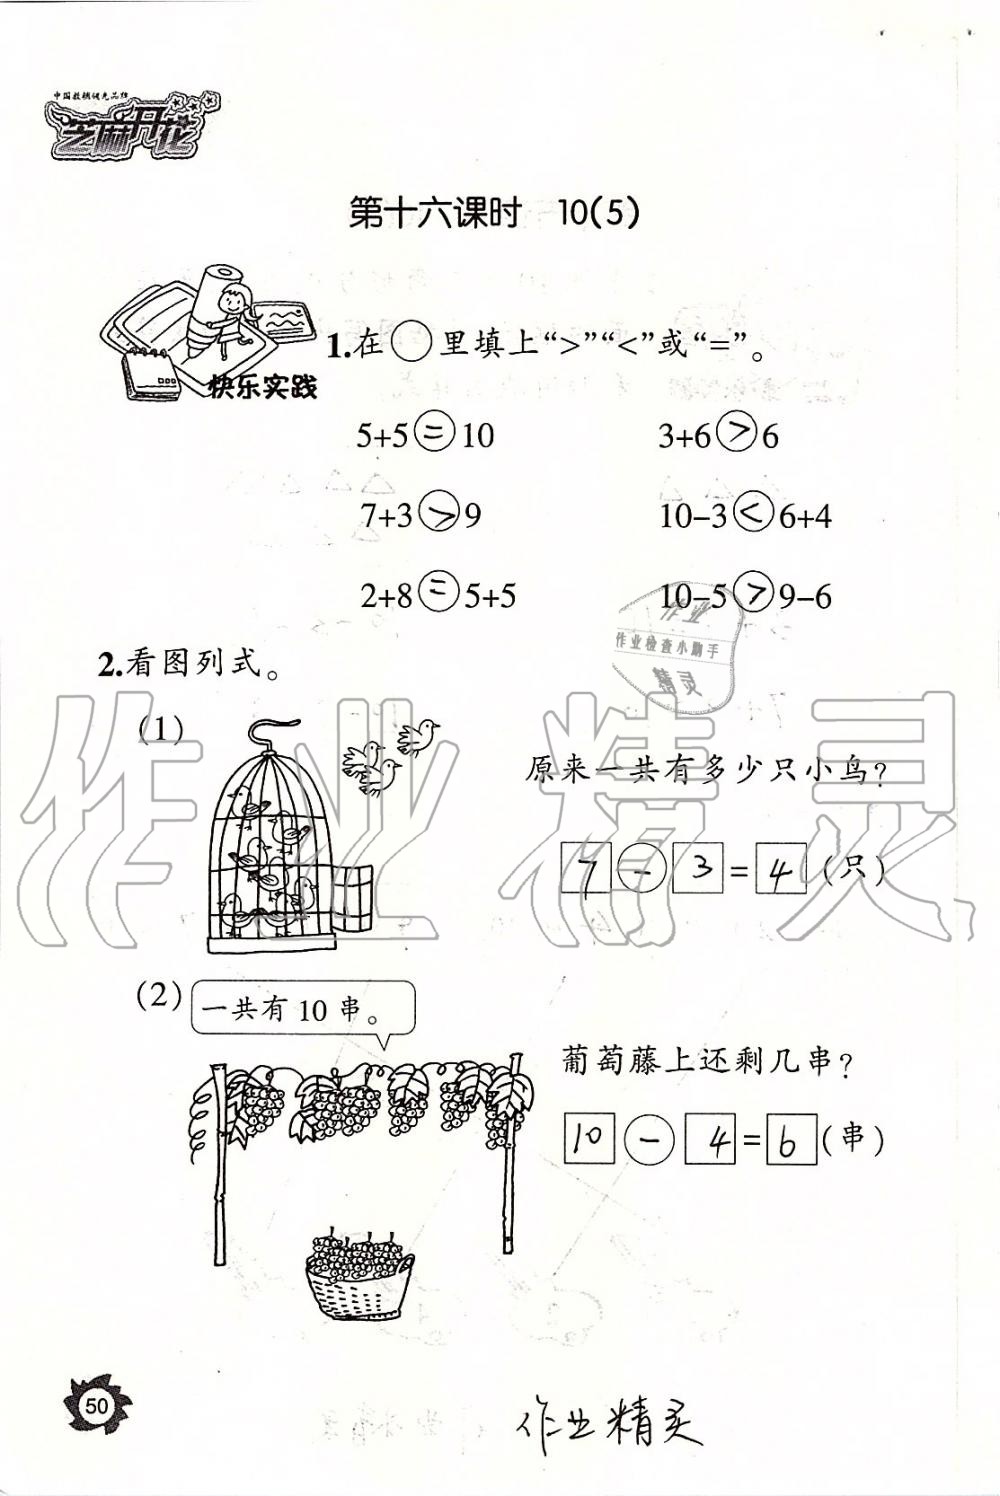 中国教辅领先品牌
芝麻开花
第十六课时 10(5)
快乐实践
1.在○里填上“>”“<”或“=”。
5+5=10 3+6>6
7+3>9 10-3<6+4
2+8=5+5 10-5>9-6
作业
作业检查小助手
精灵
2.看图列式。
(1)
原来一共有多少只小鸟?
7-3=4(只)
作业精灵
(2) 一共有10串。
葡萄藤上还剩几串?
10-4=6(串)
50
作业精灵